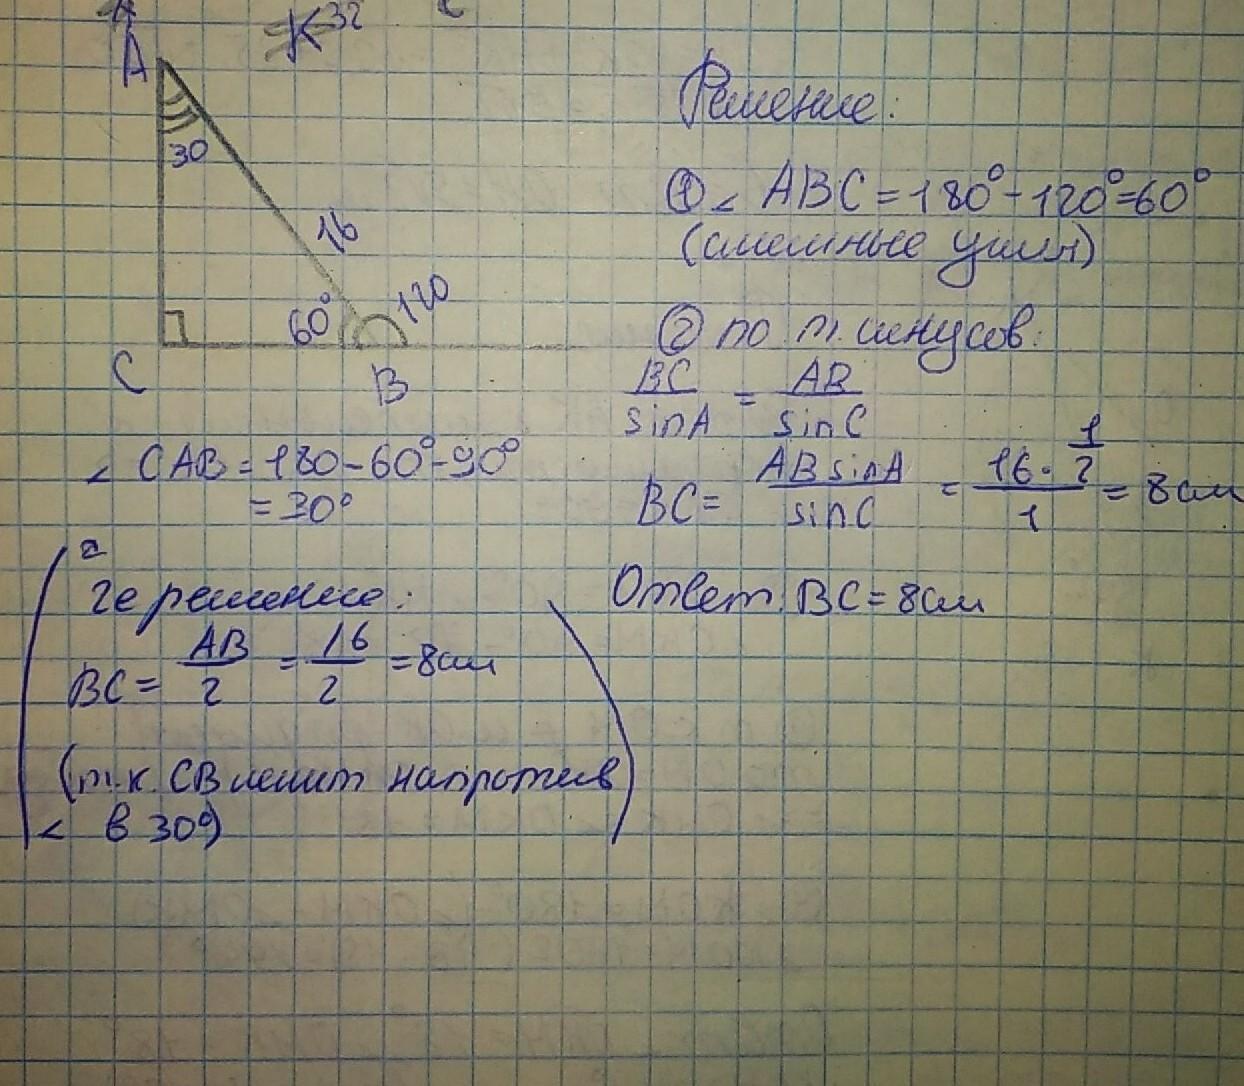 32
A
30
16
60° 120
C
B
∠ CAB = 180 - 60° - 90°
= 30°
2
2е решение:
BC = AB/2 = 16/2 = 8см
(т.к. CB лежит напротив
∠ в 30°)
Решение:
① ∠ ABC = 180° - 120° = 60°
(смежные углы)
② по т. синусов:
BC/sinA = AB/sinC
BC = AB sinA/sinC = 16 · 1/2 / 1 = 8см
Ответ: BC = 8см